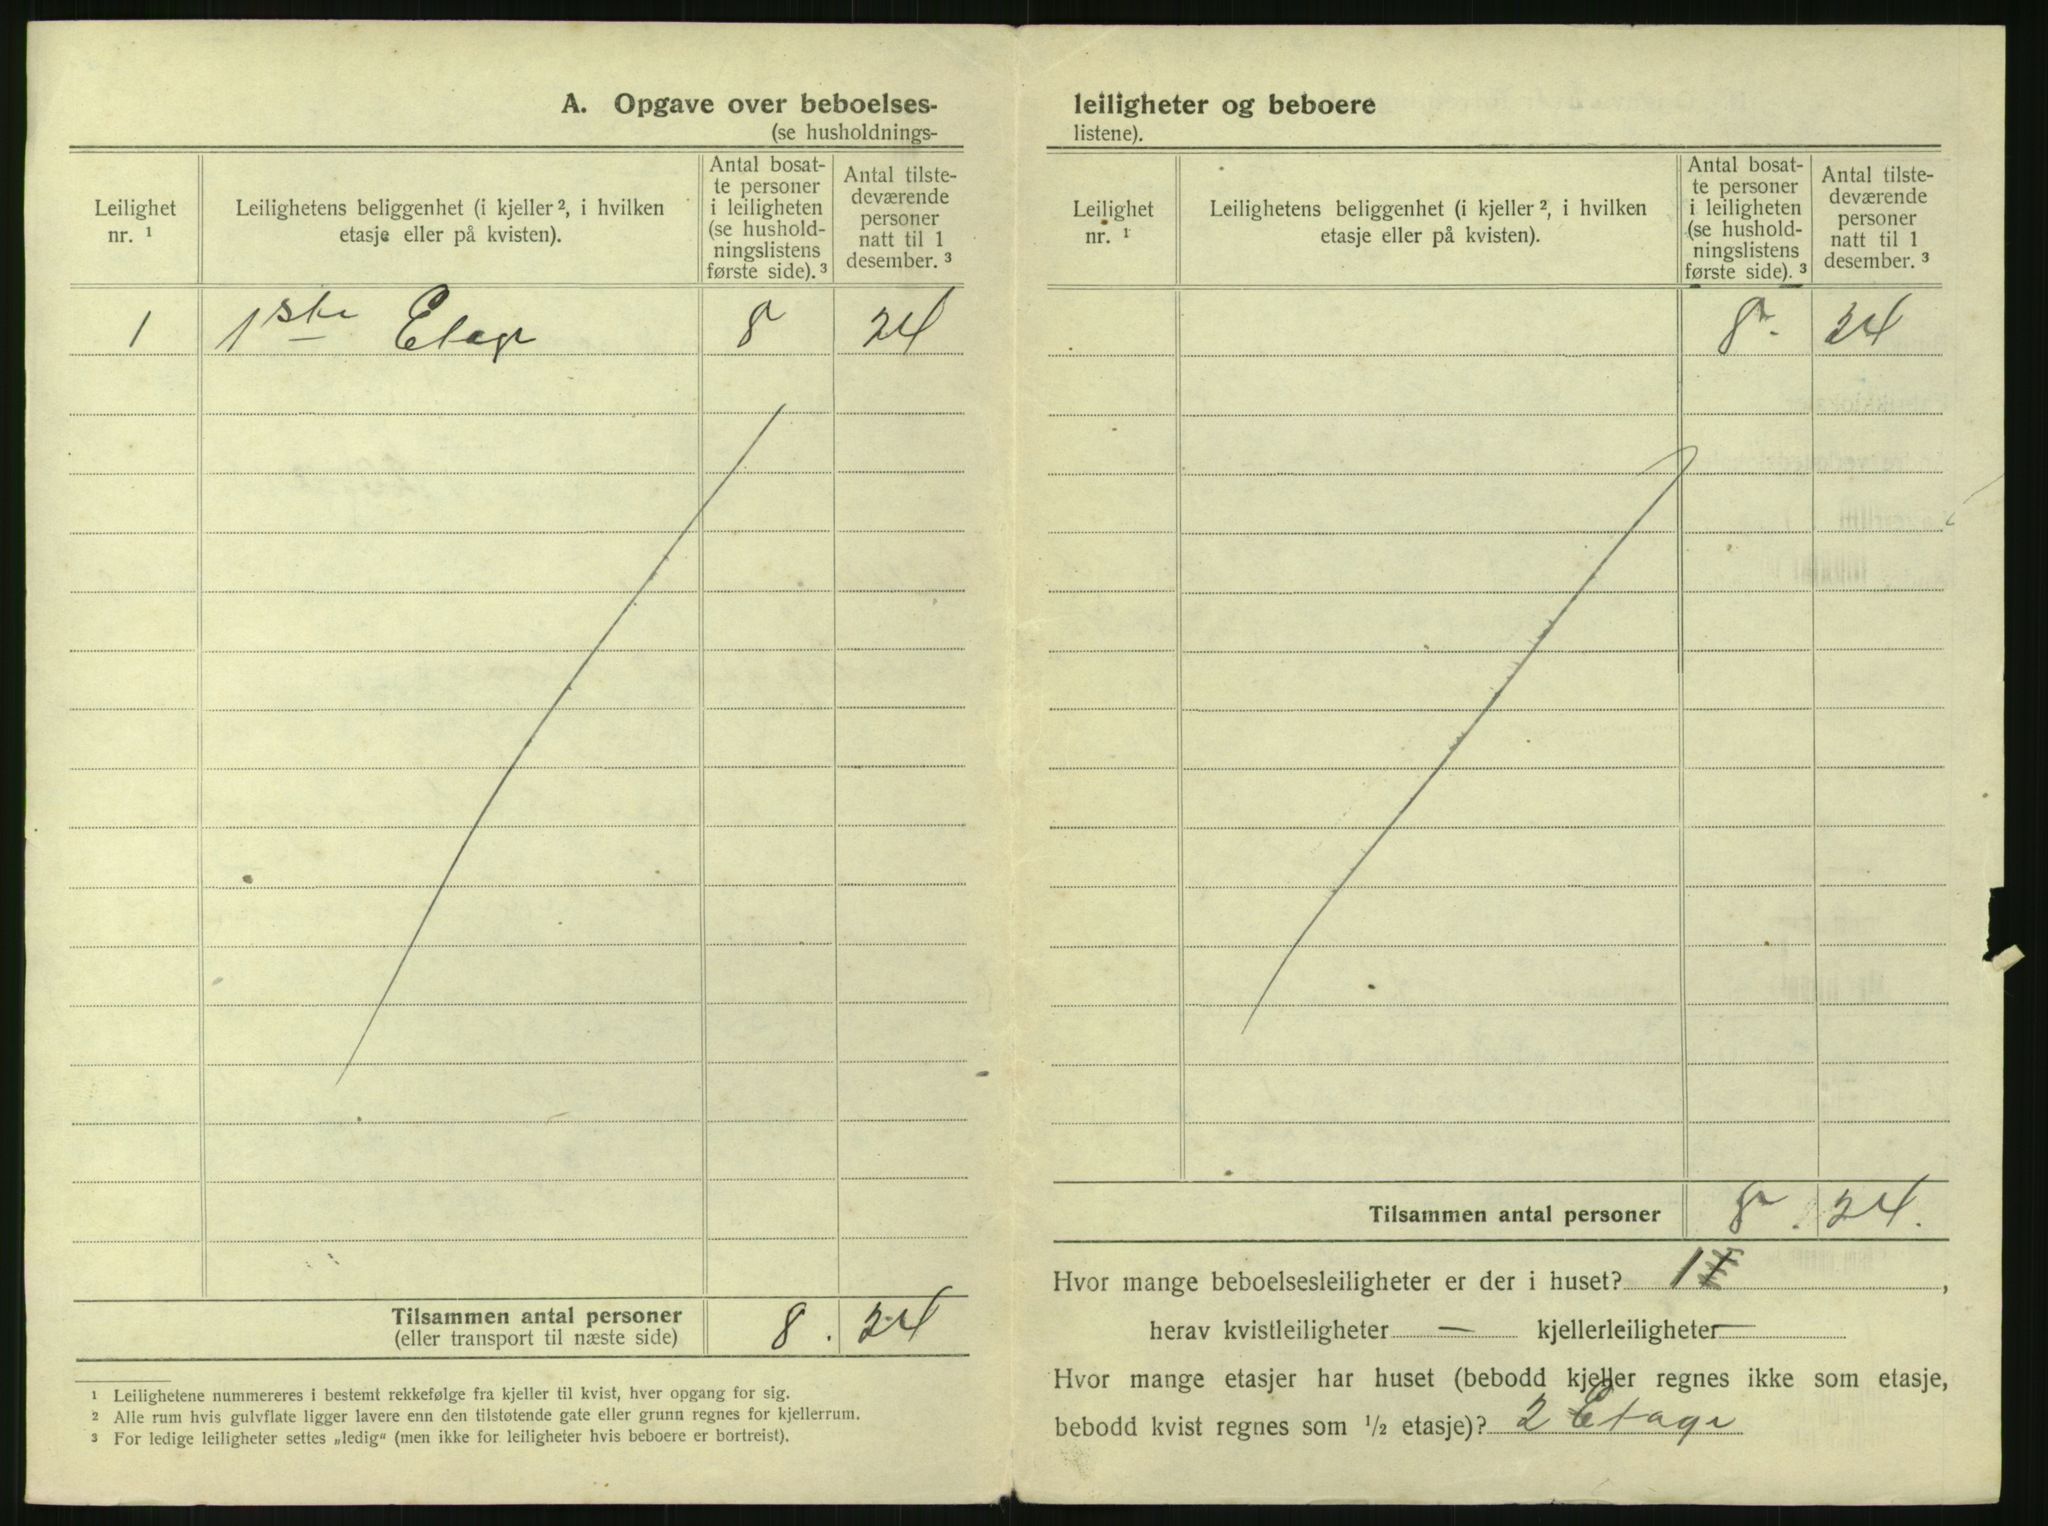 A. Opgave over beboelses-
(se husholdnings-
Leilighet nr. 1
Leilighetens beliggenhet (i kjeller 2, i hvilken etasje eller på kvisten).
Antal bosatte personer i leiligheten (se husholdningslistens første side). 3
Antal tilstedeværende personer natt til 1 desember. 3
1 1ste Etage 8 24
Tilsammen antal personer 8. 24
(eller transport til næste side)
1 Leilighetene nummereres i bestemt rekkefølge fra kjeller til kvist, hver opgang for sig.
2 Alle rum hvis gulvflate ligger lavere enn den tilstøtende gate eller grunn regnes for kjellerrum.
3 For ledige leiligheter settes „ledig“ (men ikke for leiligheter hvis beboere er bortreist).
leiligheter og beboere
listene).
Leilighet nr. 1
Leilighetens beliggenhet (i kjeller 2, i hvilken etasje eller på kvisten).
Antal bosatte personer i leiligheten (se husholdningslistens første side). 3
Antal tilstedeværende personer natt til 1 desember. 3
8. 24
Tilsammen antal personer 8. 24.
Hvor mange beboelsesleiligheter er der i huset? 1 ,
herav kvistleiligheter — kjellerleiligheter —
Hvor mange etasjer har huset (bebodd kjeller regnes ikke som etasje,
bebodd kvist regnes som 1/2 etasje)? 2 Etage